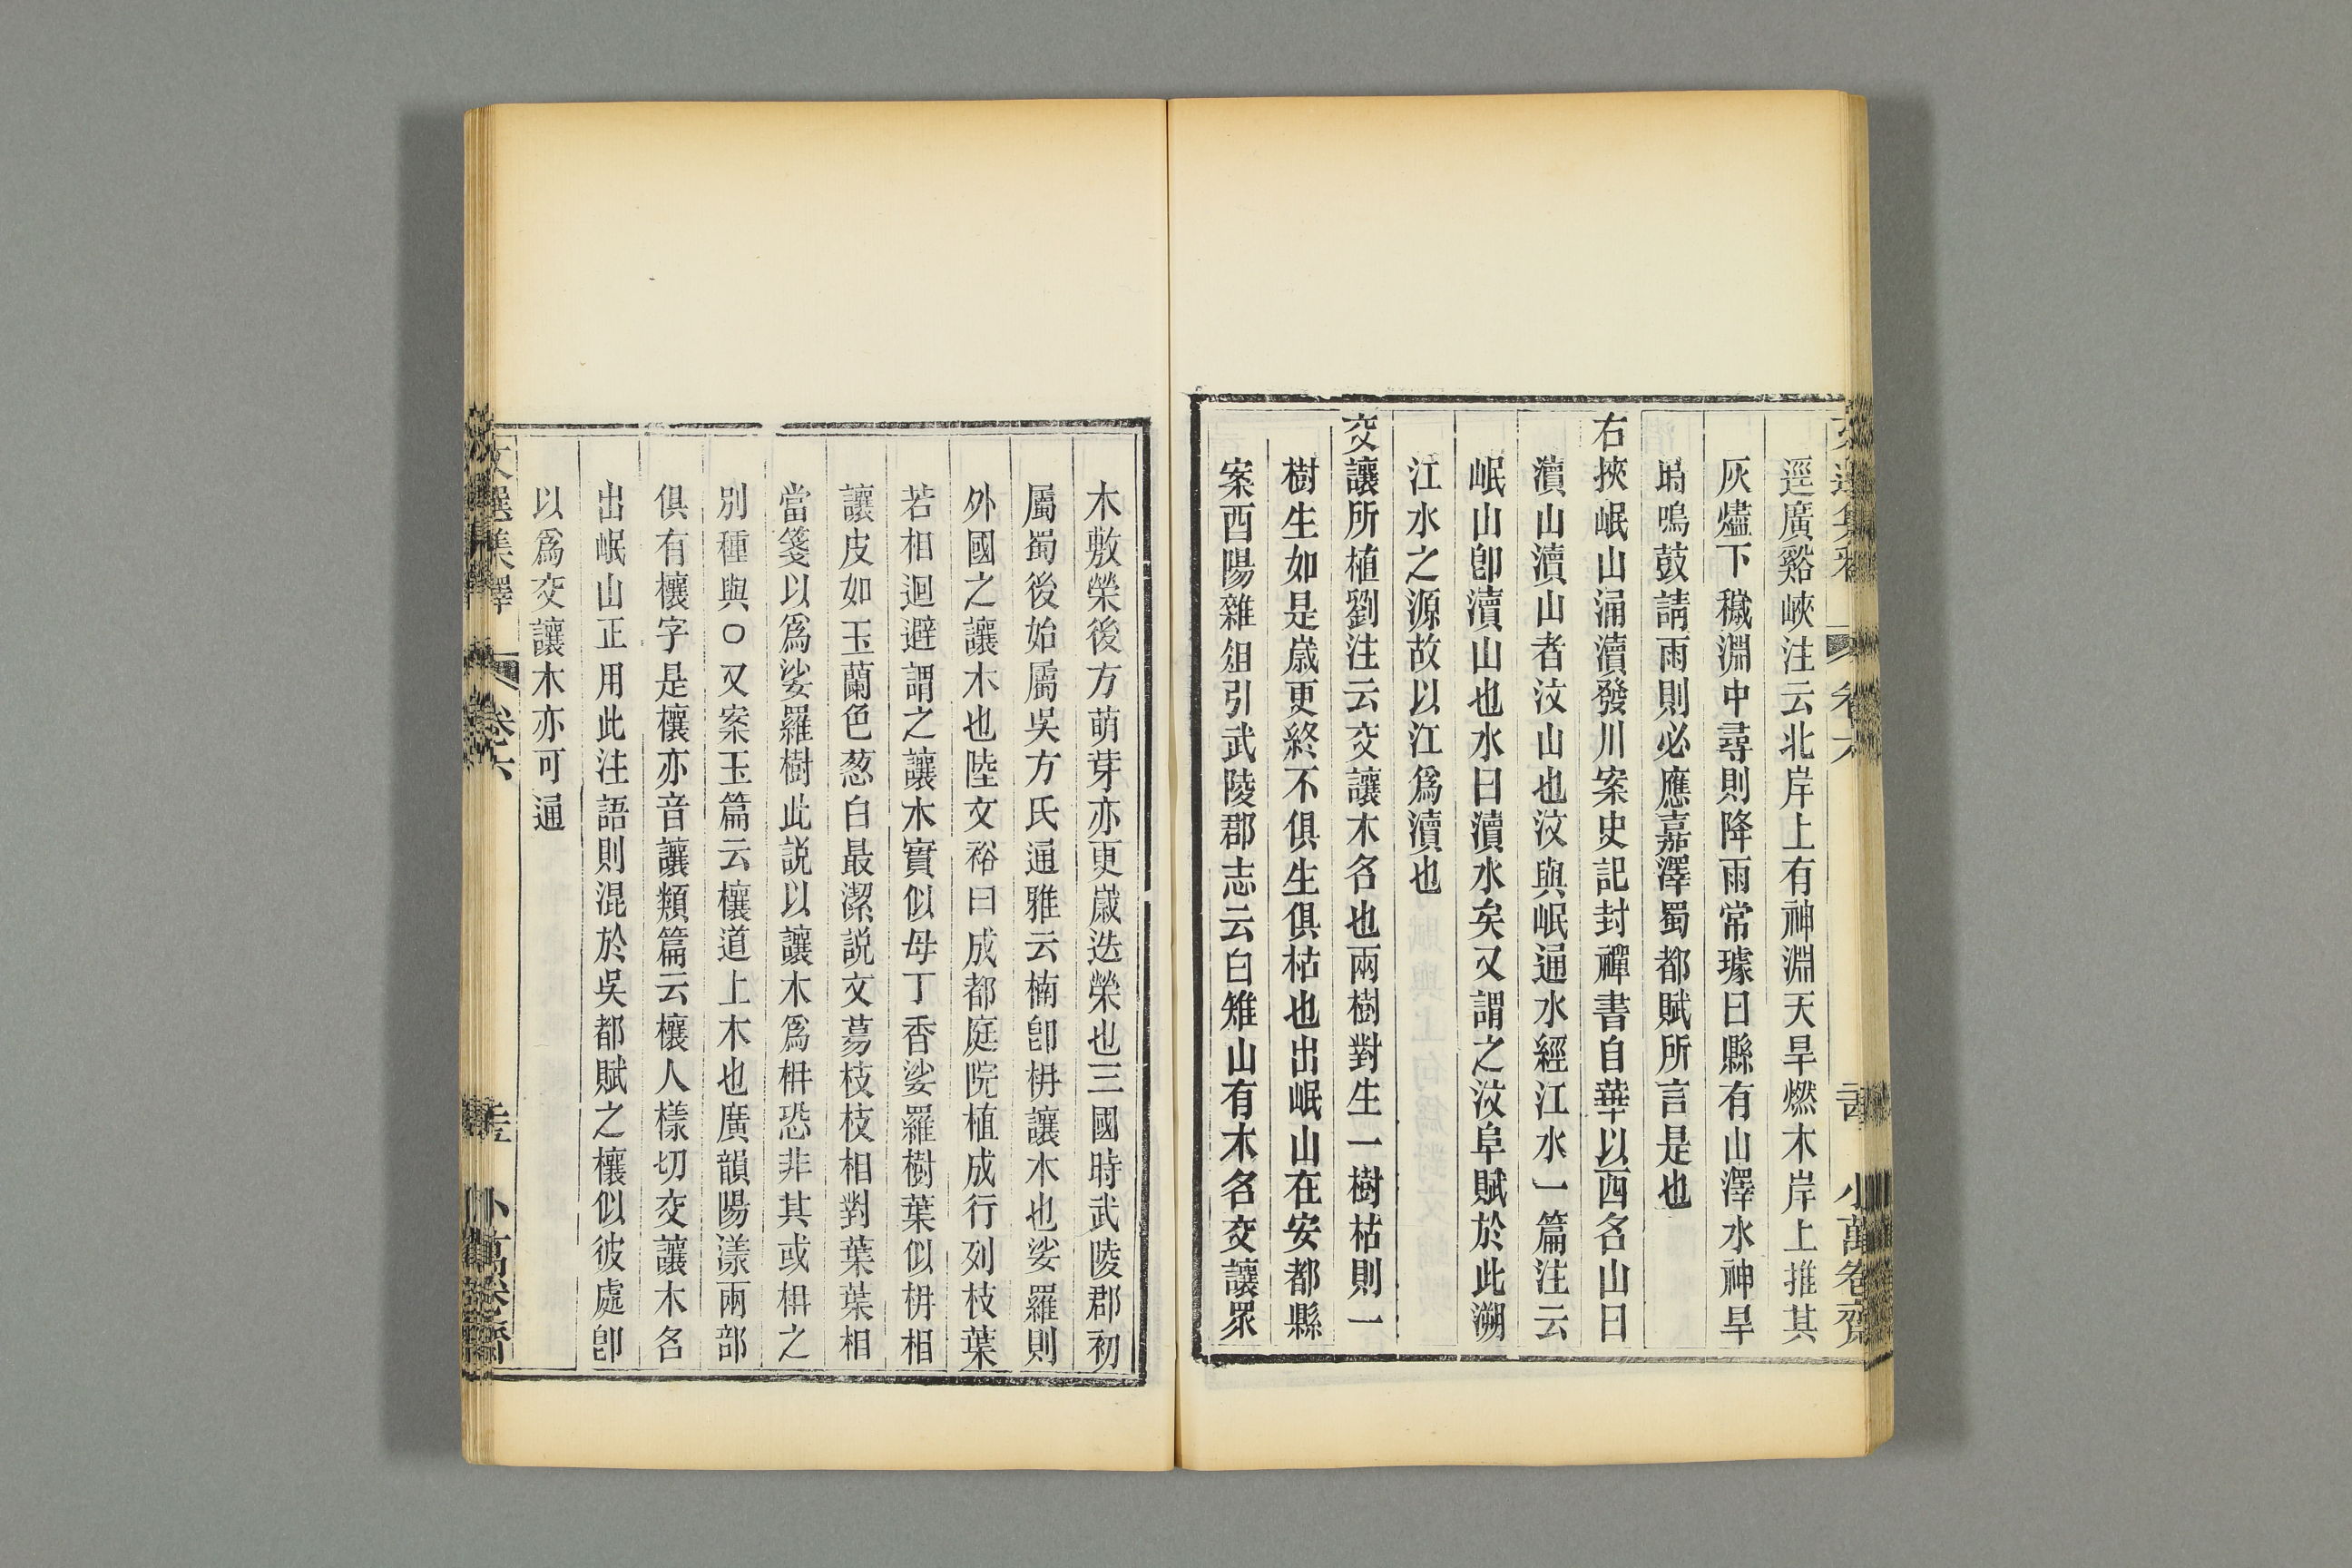 逕廣谿峽注云北岸上有神淵天旱燃木岸上推其
灰燼下穢淵中尋則降雨常璩曰縣有山澤水神旱
時鳴鼓請雨則必應嘉澤蜀都賦所言是也
右挾岷山涌瀆發川案史記封禪書自華以西名山曰
瀆山瀆山者汶山也汶與岷通水經江水一篇注云
岷山卽瀆山也水曰瀆水矣又謂之汶阜賦於此溯
江水之源故以江爲瀆也
交讓所植劉注云交讓木名也兩樹對生一樹枯則一
樹生如是歲更終不俱生俱枯也出岷山在安都縣
案酉陽雜俎引武陵郡志云白雉山有木名交讓眾
木敷榮後方萌芽亦更歲迭榮也三國時武陵郡初
屬蜀後始屬吳方氏通雅云楠卽枏讓木也娑羅則
外國之讓木也陸文裕曰成都庭院植成行列枝葉
若相迴避謂之讓木實似母丁香娑羅樹葉似枏相
讓皮如玉蘭色葱白最潔説文蒻枝枝相對葉葉相
當箋以爲娑羅樹此説以讓木爲枏恐非其或枏之
別種與○又案玉篇云欀道上木也廣韻陽漾兩部
俱有欀字是欀亦音讓類篇云欀人樣切交讓木名
出岷山正用此注語則混於吳都賦之欀似彼處卽
以爲交讓木亦可通
文選集釋 卷六 小萬卷齋